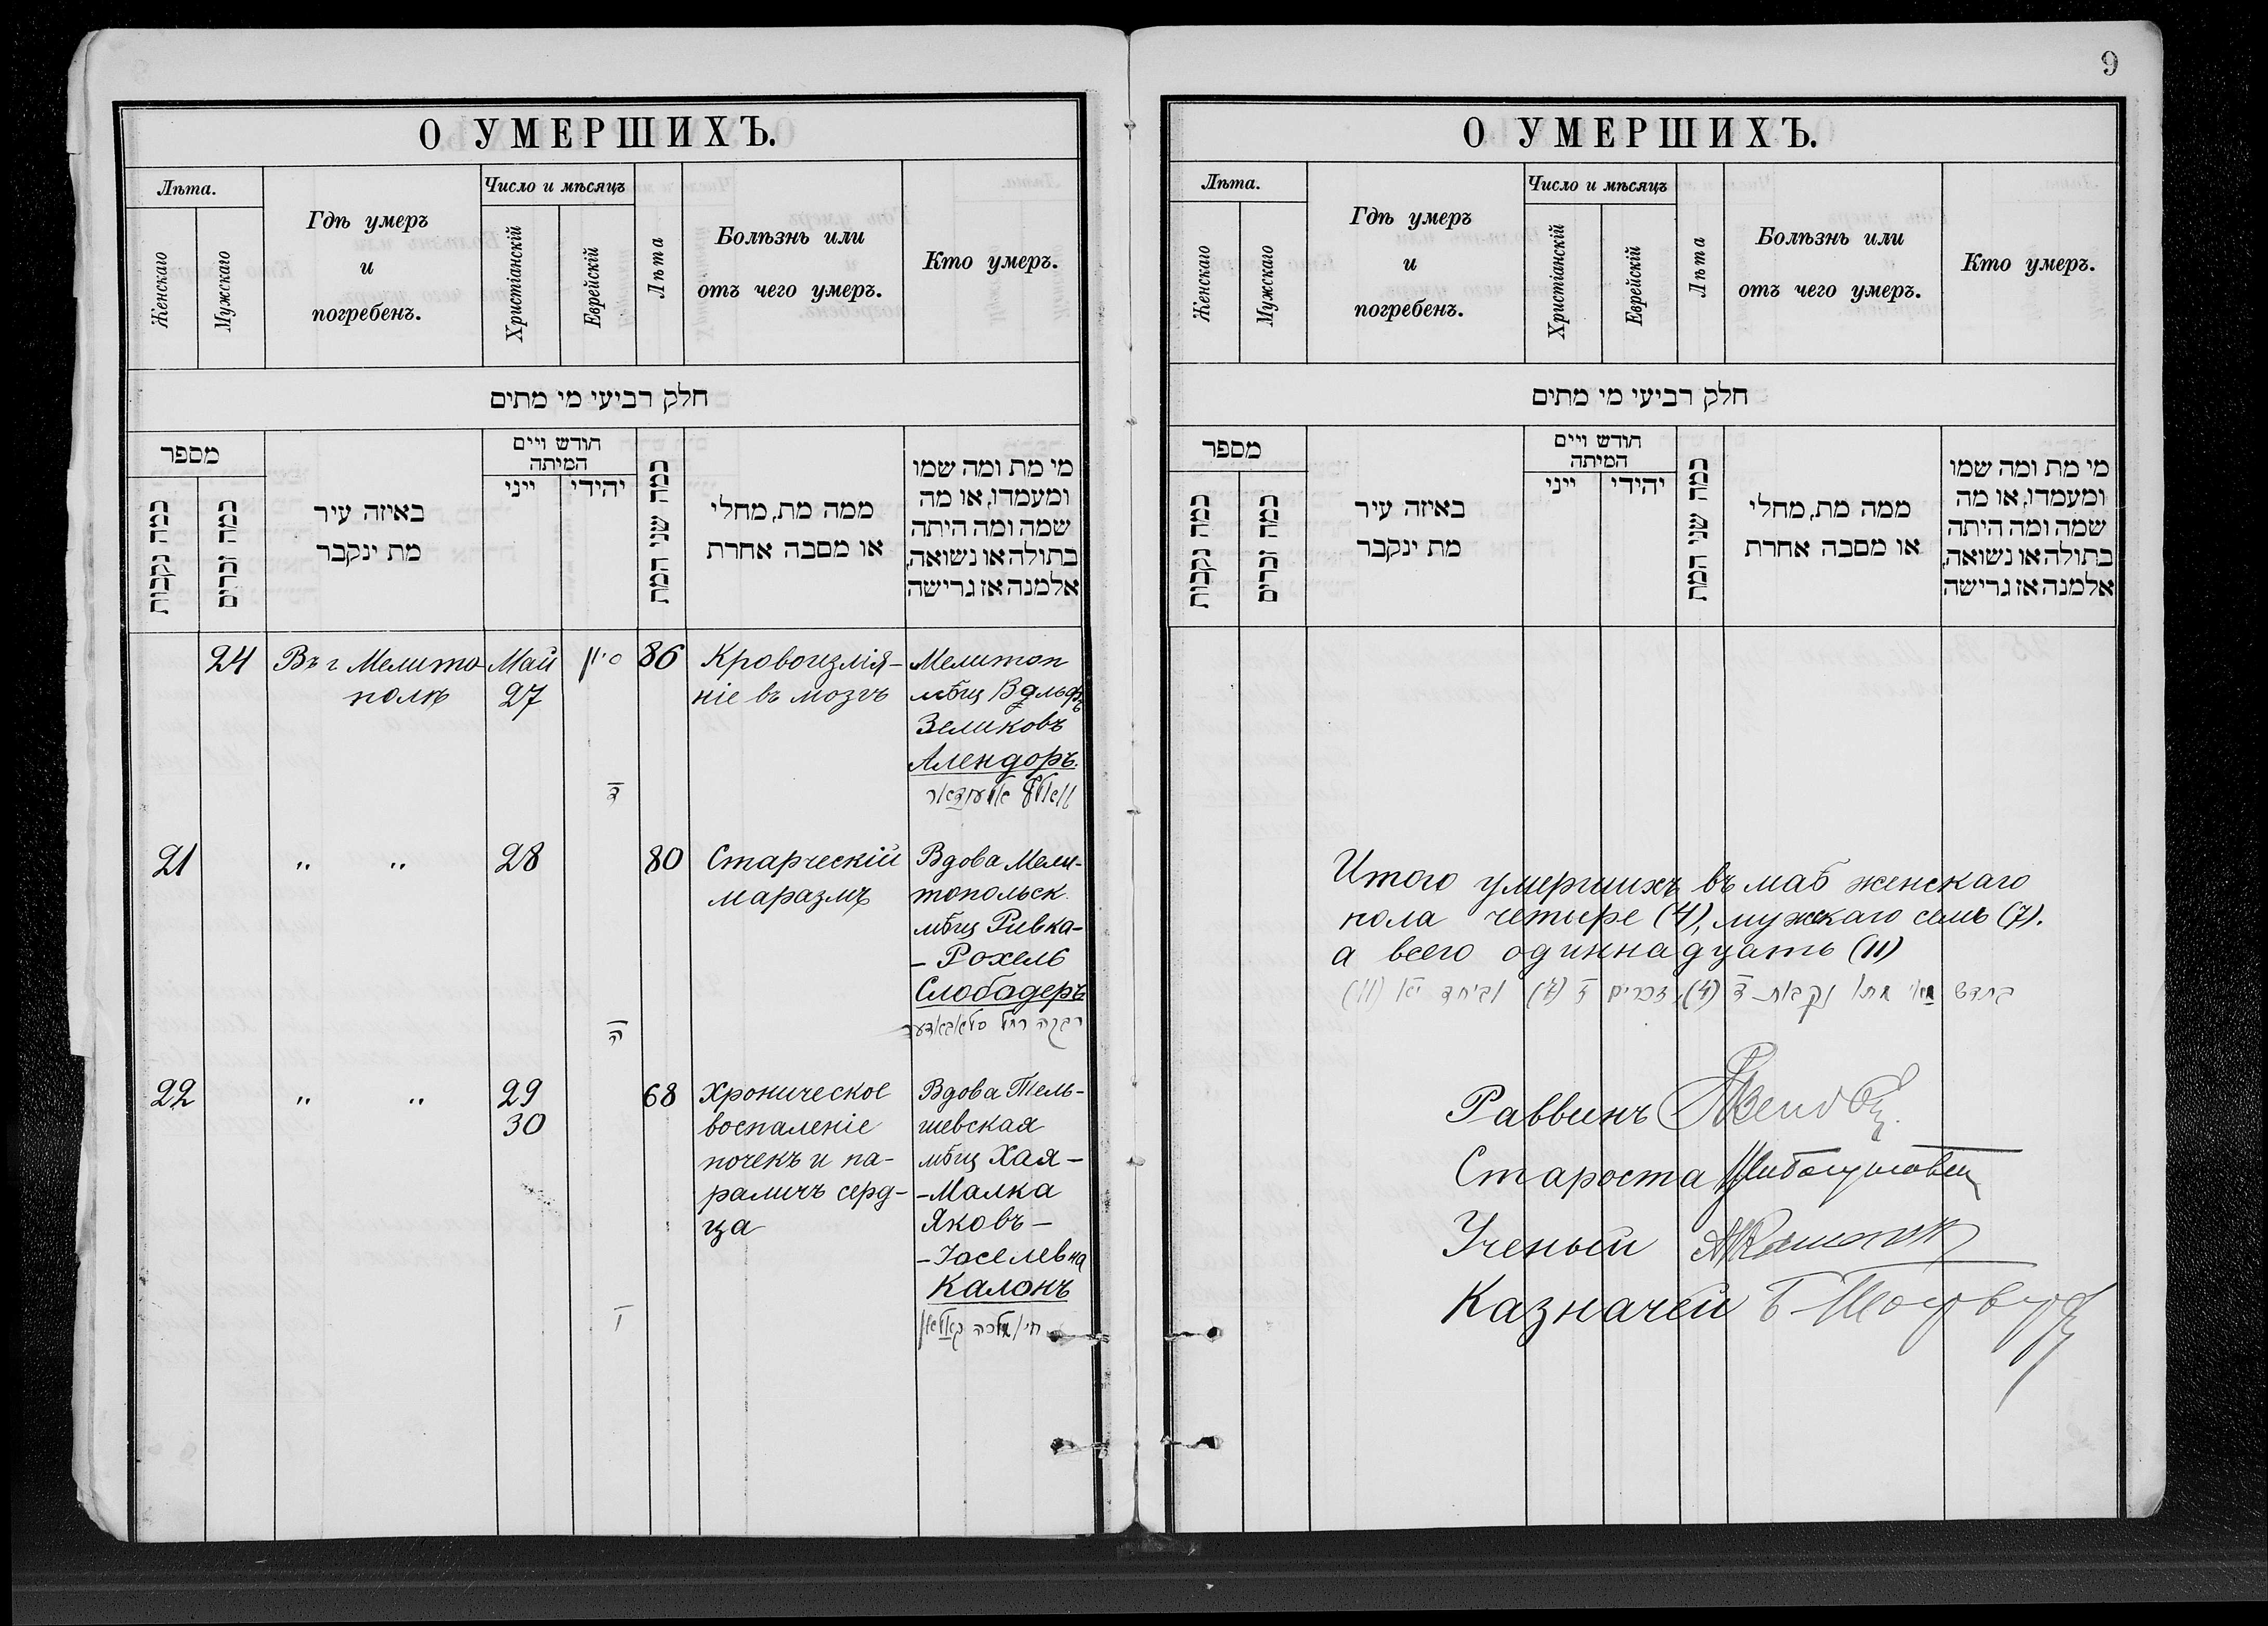 9
О УМЕРШИХЪ.
Лѣта.
Женскаго
Мужскаго
Гдѣ умеръ
и
погребенъ.
Число и мѣсяцъ
Христіанскій
Еврейскій
Лѣта
Болѣзнь или
отъ чего умеръ.
Кто умеръ.
חלק רביעי מי מתים
מספר
כמה נקבות
כמה זכרים
באיזה עיר
מת ינקבר
חודש ויים
המיתה
ייני
יהידי
כמה שני המת
ממה מת, מחלי
או מסבה אחרת
מי מת ומה שמו
ומעמדו, או מה
שמה ומה היתה
בתולה או נשואה,
אלמנה אז גרישה
24
Въ г Мелито
полѣ
Май
27
סיון
ד
86
Кровоизлія-
ніе въ мозгъ
Мелитоп
мѣщ Вольфъ
Зеликовъ
Алендоръ.
וואלף אלענדאר
21
" "
28
ה
80
Старческій
маразмъ
Вдова Мели-
топольск.
мѣщ Ривка-
- Рохель
Слободеръ
רבקה רחל סלאבאדער
22
" "
29
30
ו
68
Хроническое
воспаленіе
почекъ и па-
раличъ серд-
ца
Вдова Тель-
шевская
мѣщ Хая-
-Малка
Яковъ-
-Іоселевна
Калонъ
חי' מלכה קאלאן
О УМЕРШИХЪ.
Лѣта.
Женскаго
Мужскаго
Гдѣ умеръ
и
погребенъ.
Число и мѣсяцъ
Христіанскій
Еврейскій
Лѣта
Болѣзнь или
отъ чего умеръ.
Кто умеръ.
חלק רביעי מי מתים
מספר
כמה נקבות
כמה זכרים
באיזה עיר
מת ינקבר
חודש ויים
המיתה
ייני
יהידי
כמה שני המת
ממה מת, מחלי
או מסבה אחרת
מי מת ומה שמו
ומעמדו, או מה
שמה ומה היתה
בתולה או נשואה,
אלמנה אז גרישה
Итого умершихъ въ маѣ женскаго
пола четыре (4), мужскаго семь (7).
а всего одиннадцать (11)
בחדש מאי מתו נקבות ד (4), זכרים ז (7) וביחד יא (11)
Раввинъ
Староста
Ученый
Казначей